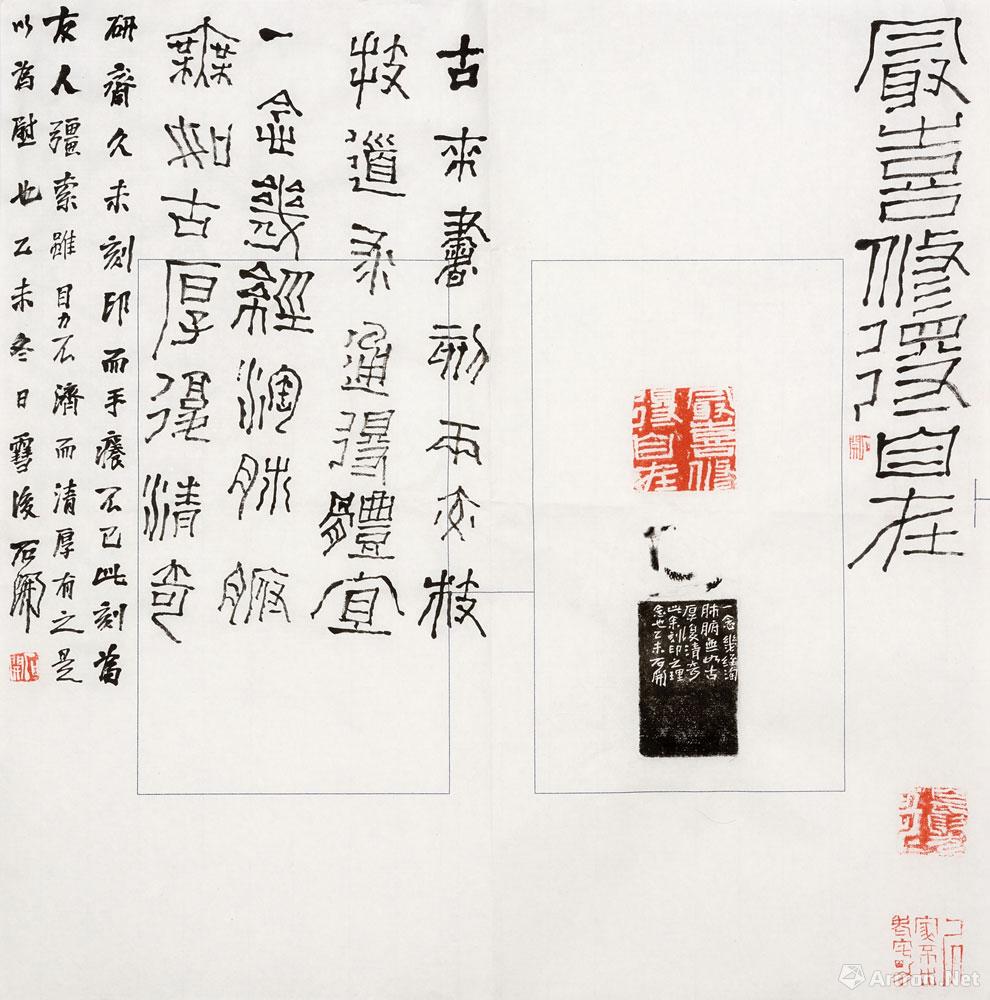 最喜修得自在
最喜修得自在
一念幾經淘
肺腑無如古
厚復清奇
此余刻印之理
念也乙未石開
古來書刻兩交枝
技道參通得體宜
一念幾經淘肺腑
無如古厚復清奇
研齋久未刻印而手癢不已此刻為
友人彊索雖目力不濟而清厚有之是
以為慰也乙未冬日雪後石開
Artron.Net